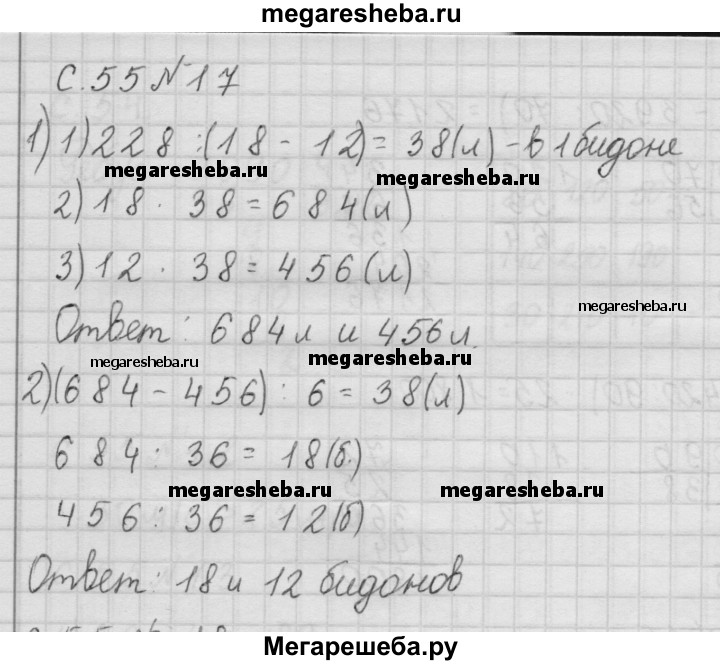 megaresheba.ru
с. 55 № 17
1) 1) 228 : (18 - 12) = 38 (л) - в 1 бидоне
megaresheba.ru megaresheba.ru
2) 18 · 38 = 684 (л)
3) 12 · 38 = 456 (л)
megaresheba.ru
Ответ: 684 л и 456 л.
megaresheba.ru megaresheba.ru
2) (684 - 456) : 6 = 38 (л)
684 : 36 = 18 (б.)
megaresheba.ru megaresheba.ru
456 : 36 = 12 (б)
Ответ: 18 и 12 бидонов
Мегарешеба.ру